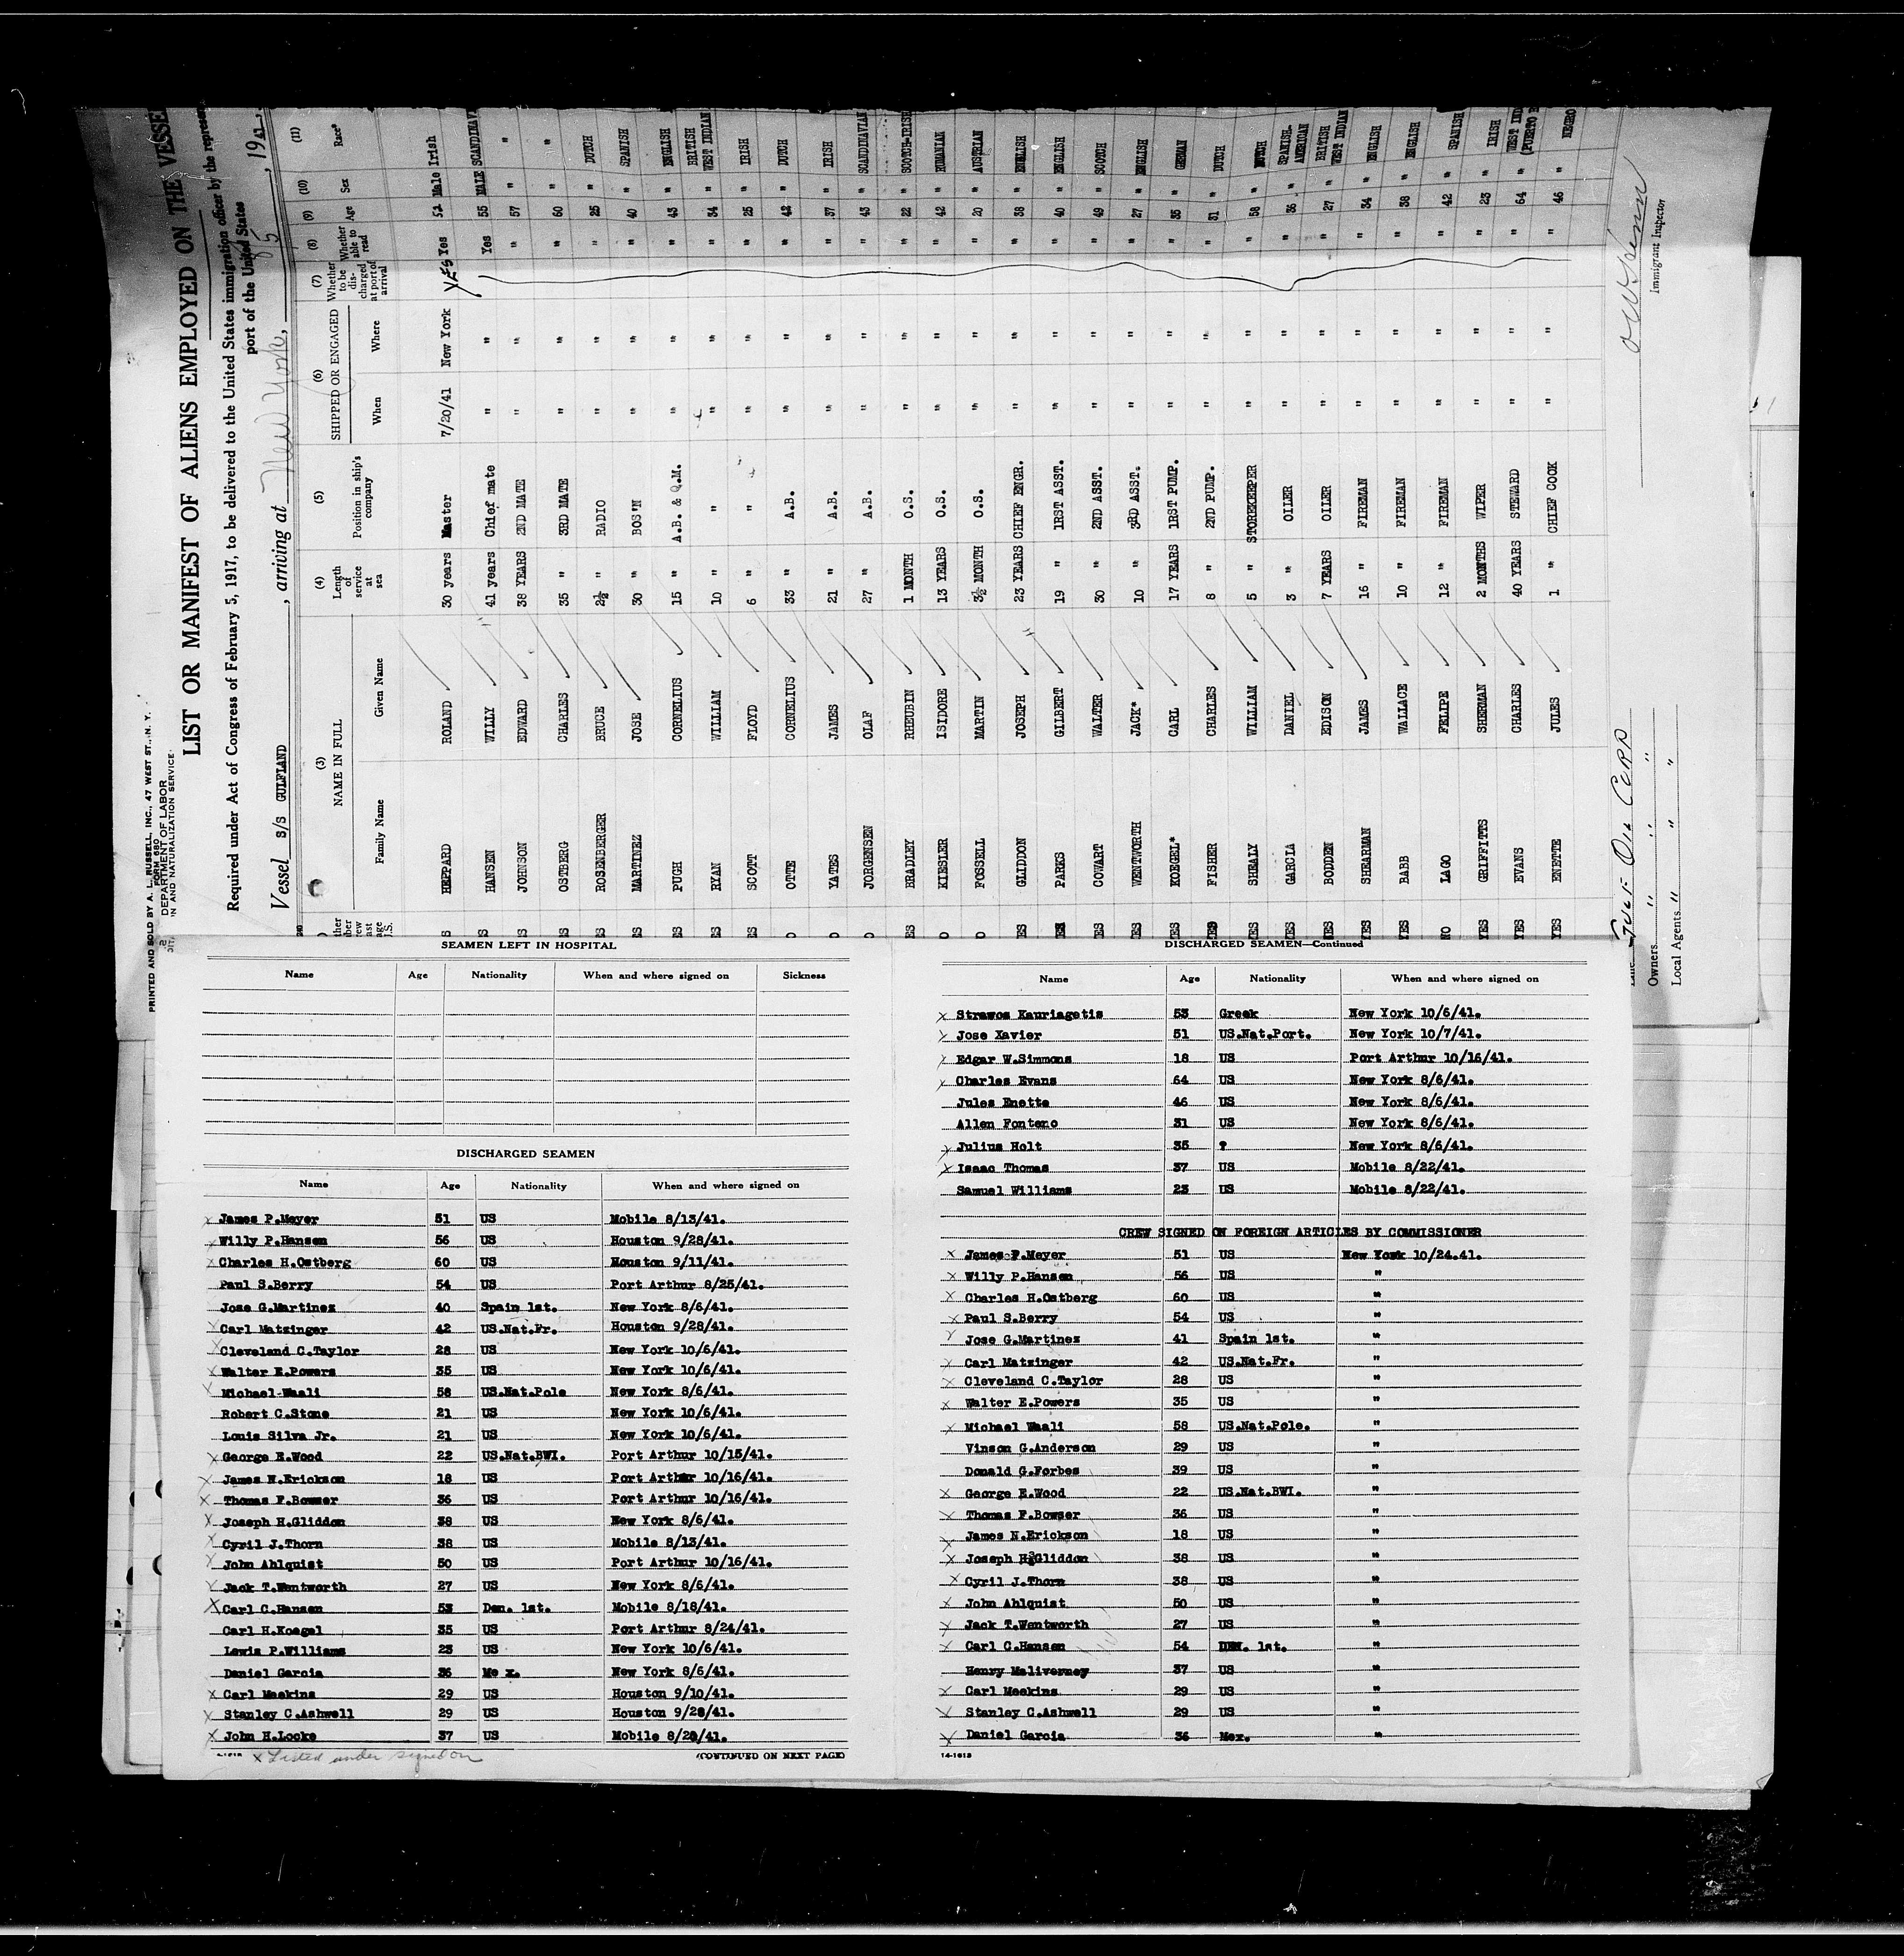 PRINTED AND SOLD BY A. L. RUSSELL, INC., 47 WEST ST., N. Y.
FORM 680
DEPARTMENT OF LABOR
N AND NATURALIZATION SERVICE
LIST OR MANIFEST OF ALIENS EMPLOYED ON THE VESSE
Required under Act of Congress of February 5, 1917, to be delivered to the United States immigration officer by the represen
port of the United States
Vessel S/S GULFLAND, arriving at New York, 8/5, 1941,
(3) NAME IN FULL (4) (5) (6) SHIPPED OR ENGAGED (7) (8) (9) (10) (11)
Family Name Given Name Length of service at sea Position in ship's company When Where Whether to be discharged at port of arrival Whether able to read Age Sex Race*
HEPPARD ROLAND 30 years Master 7/20/41 New York Yes Yes 52 Male Irish
ES HANSEN WILLY 41 years Chief mate " " Yes 55 MALE SCANDINAVI
ES JOHNSON EDWARD 38 YEARS 2ND MATE " " " 57 " "
ES OSTBERG CHARLES 35 " 3RD MATE " " " 60 " "
ES ROSENBERGER BRUCE 2½ " RADIO " " " 25 " DUTCH
ES MARTINEZ JOSE 30 " BOS'N " " " 40 " SPANISH
ES PUGH CORNELIUS 15 " A.B. & Q.M. " " " 43 " ENGLISH
ES RYAN WILLIAM 10 " " " " " 34 " BRITISH WEST INDIAN
ES SCOTT FLOYD 6 " " " " " 25 " IRISH
O OTTE CORNELIUS 33 " A.B. " " " 42 " DUTCH
O YATES JAMES 21 " A.B. " " " 37 " IRISH
O JORGENSEN OLAF 27 " A.B. " " " 43 " SCANDINAVIAN
ES BRADLEY RHEUBIN 1 MONTH O.S. " " " 22 " SCOTCH-IRISH
O KIESLER ISIDORE 13 YEARS O.S. " " " 42 " RUMANIAN
O FOSSELL MARTIN 3½ MONTH O.S. " " " 20 " AUSTRIAN
ES GLIDDON JOSEPH 23 YEARS CHIEF ENGR. " " " 38 " ENGLISH
PARKS GILBERT 19 " 1RST ASST. " " " 40 " ENGLISH
ES COWART WALTER 30 " 2ND ASST. " " " 49 " SCOTCH
ES WENTWORTH JACK* 10 " 3RD ASST. " " " 27 " ENGLISH
YES KOEGEL* CARL 17 YEARS 1RST PUMP. " " " 35 " GERMAN
FISHER CHARLES 8 " 2ND PUMP. " " " 51 " DUTCH
YES SHEALY WILLIAM 5 " STOREKEEPER " " " 58 " DUTCH
YES GARCIA DANIEL 3 " OILER " " " 36 " SPANISH-AMERICAN
YES BODDEN EDISON 7 YEARS OILER " " " 27 " BRITISH WEST INDIAN
YES SHEARMAN JAMES 16 " FIREMAN " " " 34 " ENGLISH
YES BABB WALLACE 10 " FIREMAN " " " 38 " ENGLISH
NO LAGO FELIPE 12 " FIREMAN " " " 42 " SPANISH
YES GRIFFITTS SHERMAN 2 MONTHS WIPER " " " 23 " IRISH
YES EVANS CHARLES 40 YEARS STEWARD " " " 64 " WEST IND (PUERTO
YES ENETTE JULES 1 " CHIEF COOK " " " 46 " NEGRO
Gulf Oil Corp
Owners " " "
Local Agents " " "
Immigrant Inspector
SEAMEN LEFT IN HOSPITAL
Name Age Nationality When and where signed on Sickness
DISCHARGED SEAMEN
Name Age Nationality When and where signed on
x James P.Meyer 51 US Mobile 8/13/41.
x Willy P.Hansen 56 US Houston 9/28/41.
x Charles H.Ostberg 60 US Houston 9/11/41.
Paul S.Berry 54 US Port Arthur 8/25/41.
Jose G.Martinez 40 Spain 1st. New York 8/6/41.
x Carl Matzinger 42 US.Nat.Fr. Houston 9/28/41.
x Cleveland C.Taylor 28 US New York 10/6/41.
x Walter E.Powers 35 US New York 10/6/41.
x Michael Waali 58 US.Nat.Pole New York 8/6/41.
Robert C.Stone 21 US New York 10/6/41.
Louis Silva Jr. 21 US New York 10/6/41.
x George E.Wood 22 US.Nat.BWI. Port Arthur 10/15/41.
x James N.Erickson 18 US Port Arthur 10/16/41.
x Thomas F.Bowser 36 US Port Arthur 10/16/41.
x Joseph H.Gliddon 38 US New York 8/6/41.
x Cyril J.Thorn 38 US Mobile 8/13/41.
x John Ahlquist 50 US Port Arthur 10/16/41.
x Jack T.Wentworth 27 US New York 8/6/41.
x Carl C.Hansen 53 Den. 1st. Mobile 8/18/41.
Carl H.Koegel 35 US Port Arthur 8/24/41.
Lewis P.Williams 23 US New York 10/6/41.
Daniel Garcia 36 Me x. New York 8/6/41.
x Carl Meekins 29 US Houston 9/10/41.
x Stanley C.Ashwell 29 US Houston 9/28/41.
x John H.Locke 37 US Mobile 8/20/41.
x Listed under signed on
(CONTINUED ON NEXT PAGE)
DISCHARGED SEAMEN—Continued
Name Age Nationality When and where signed on
x Strawos Kauriagetis 53 Greek New York 10/6/41.
x Jose Xavier 51 US.Nat.Port. New York 10/7/41.
x Edgar W.Simmons 18 US Port Arthur 10/16/41.
x Charles Evans 64 US New York 8/6/41.
Jules Enette 46 US New York 8/6/41.
Allen Fonteno 31 US New York 8/6/41.
x Julius Holt 35 ? New York 8/6/41.
x Isaac Thomas 37 US Mobile 8/22/41.
Samuel Williams 23 US Mobile 8/22/41.
CREW SIGNED ON FOREIGN ARTICLES BY COMMISSIONER
x James P.Meyer 51 US New York 10/24.41.
x Willy P.Hansen 56 US "
x Charles H.Ostberg 60 US "
x Paul S.Berry 54 US "
x Jose G.Martinez 41 Spain 1st. "
x Carl Matzinger 42 US.Nat.Fr. "
x Cleveland C.Taylor 28 US "
x Walter E.Powers 35 US "
x Michael Waali 58 US.Nat.Pole. "
Vinson G.Anderson 29 US "
Donald G.Forbes 39 US "
x George E.Wood 22 US.Nat.BWI. "
x Thomas F.Bowser 36 US "
x James N.Erickson 18 US "
x Joseph H.Gliddon 38 US "
x Cyril J.Thorn 38 US "
x John Ahlquist 50 US "
x Jack T.Wentworth 27 US "
x Carl C.Hansen 54 DEN. 1st. "
Henry Maliverney 37 US "
x Carl Meekins 29 US "
x Stanley C.Ashwell 29 US "
x Daniel Garcia 36 Mex. "
14-1613